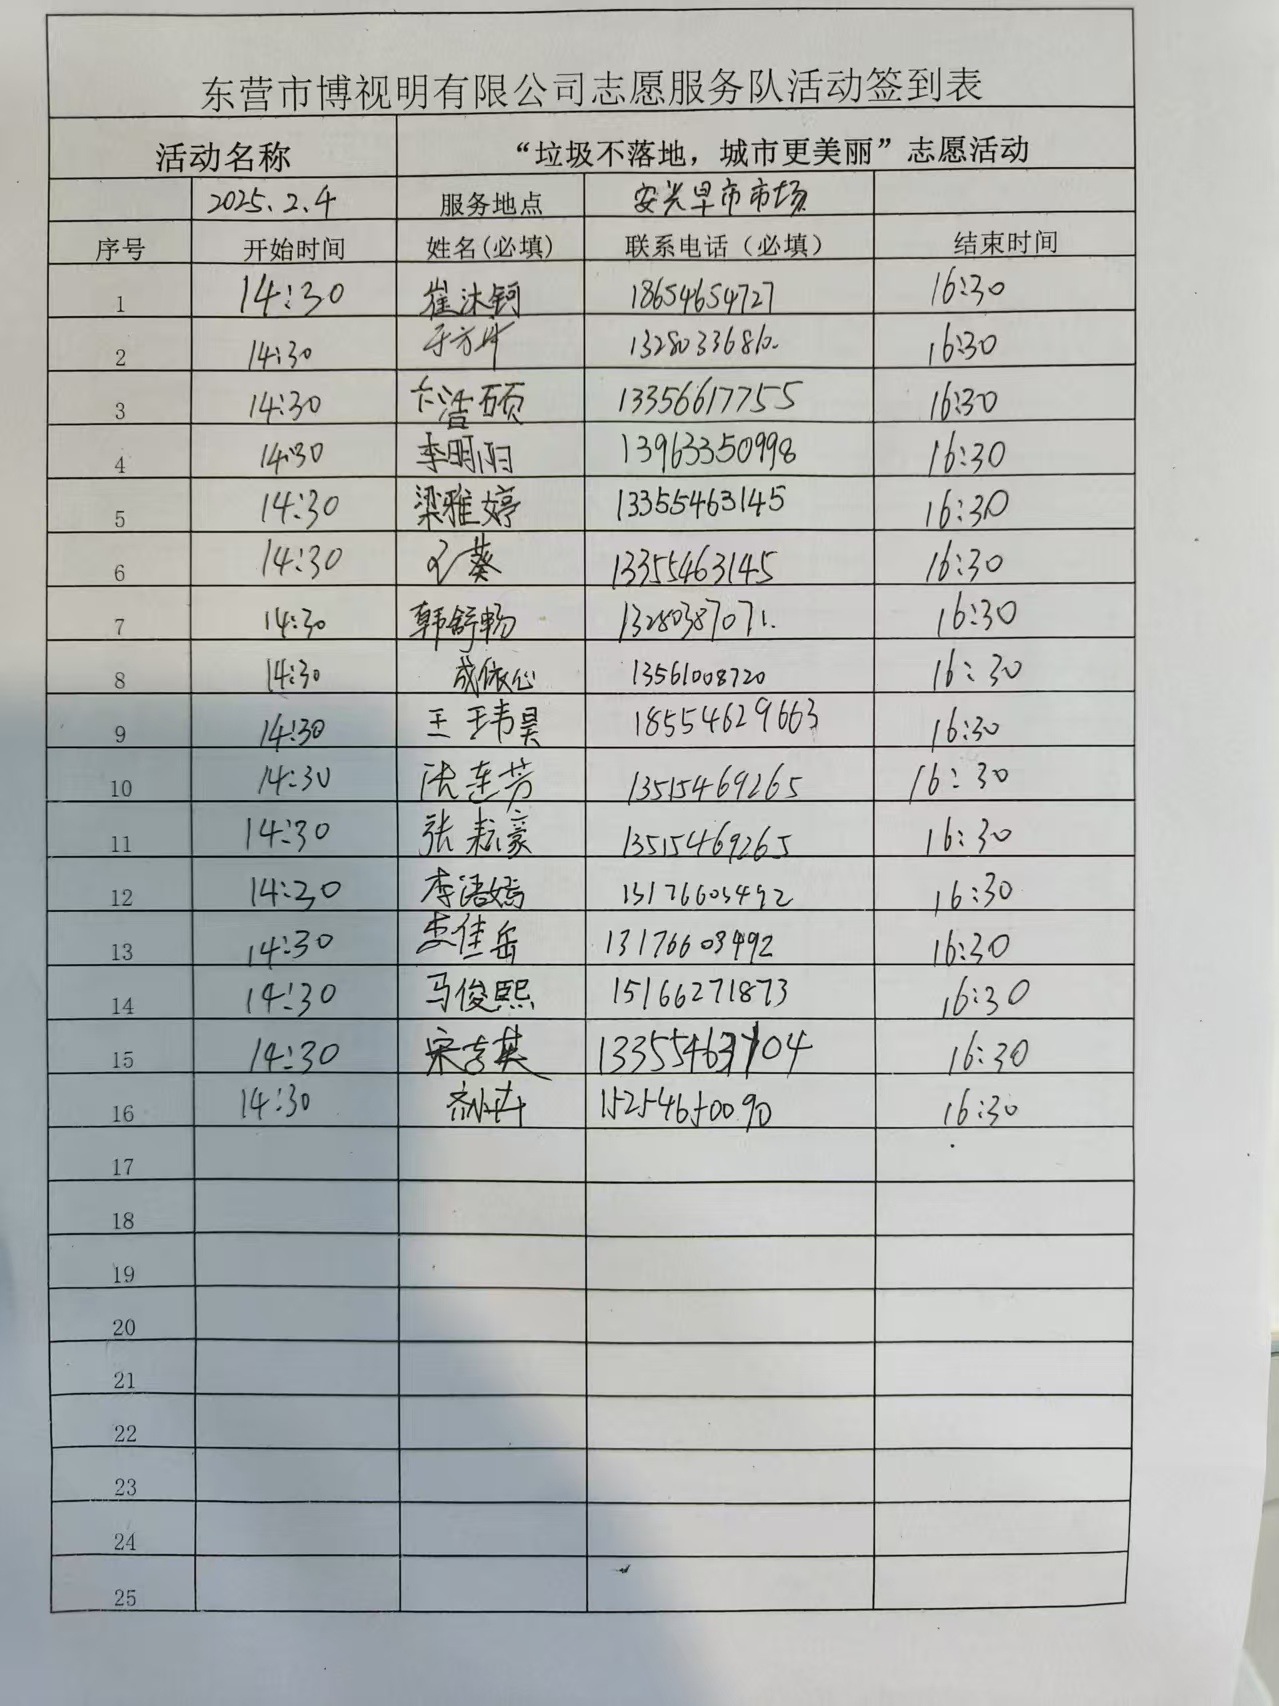 东营市博视明有限公司志愿服务队活动签到表
活动名称 “垃圾不落地，城市更美丽”志愿活动
2025.2.4 服务地点 安兴早市市场
序号 开始时间 姓名(必填) 联系电话（必填） 结束时间
1 14:30 崔沐钶 18654654727 16:30
2 14:30 16:30
3 14:30 卞浩硕 13356617755 16:30
4 14:30 李明阳 13963350998 16:30
5 14:30 梁雅婷 13355463145 16:30
6 14:30 13355463145 16:30
7 14:30 韩舒畅 13280387071. 16:30
8 14:30 成依心 13561008720 16:30
9 14:30 王玮昊 18554629663 16:30
10 14:30 连芳 13515469265 16:30
11 14:30 张耘豪 13515469265 16:30
12 14:30 李语嫣 13176603492 16:30
13 14:30 李佳岳 13176603492 16:30
14 14:30 马俊熙 15166271873 16:30
15 14:30 宋吉英 16:30
16 14:30 15254650090 16:30
17
18
19
20
21
22
23
24
25